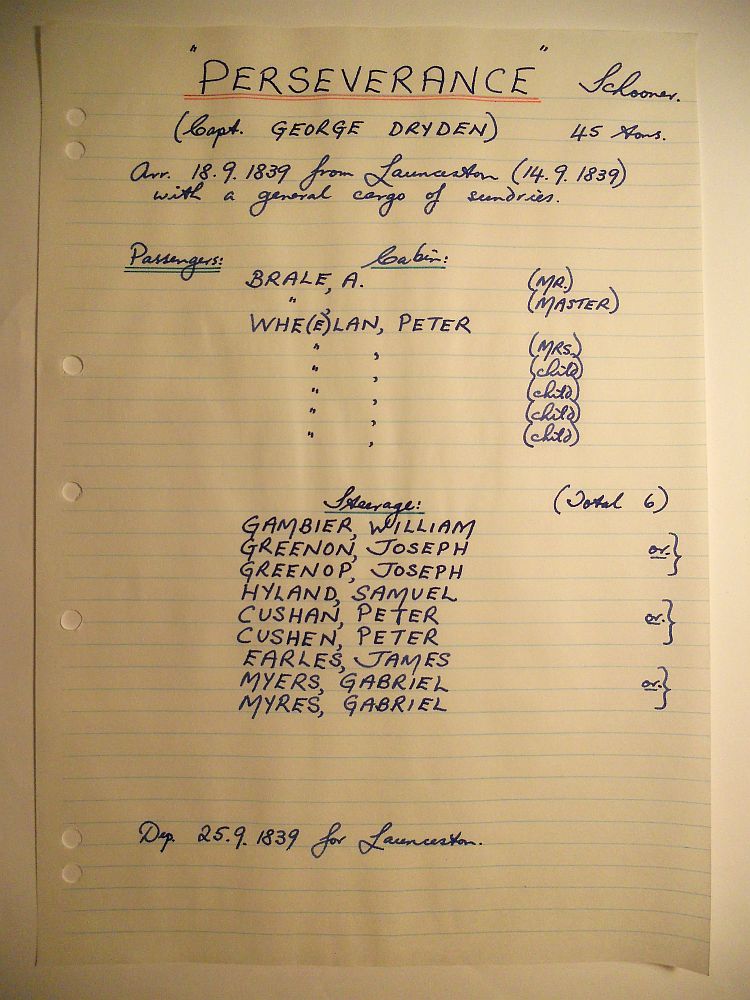 "PERSEVERANCE" Schooner.
(Capt. GEORGE DRYDEN) 45 tons.
Arr. 18.9.1839 from Launceston (14.9.1839)
with a general cargo of sundries.
Passengers: Cabin:
BRALE, A. (MR.)
" , (MASTER)
WHE(E)LAN, PETER
" , (MRS.)
" , (child)
" , (child)
" , (child)
" , (child)
Steerage: (Total 6)
GAMBIER, WILLIAM
GREENON, JOSEPH or. }
GREENOP, JOSEPH
HYLAND, SAMUEL
CUSHAN, PETER or. }
CUSHEN, PETER
EARLES, JAMES
MYERS, GABRIEL or. }
MYRES, GABRIEL
Dep. 25.9.1839 for Launceston.